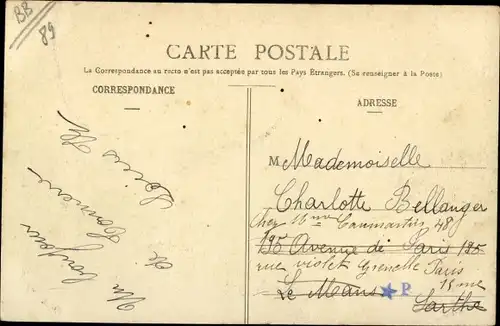 BB
89
CARTE POSTALE
La Correspondance au recto n'est pas acceptée par tous les Pays Etrangers. (Se renseigner à la Poste)
CORRESPONDANCE
Un bonjour
de
Louis
ADRESSE
M Mademoiselle
Charlotte Bellanger
Chez Mme Caumartin 48
195 Avenue de Paris 195
rue violet Grenelle Paris
15 me
Le Mans ★ P
Sarthe